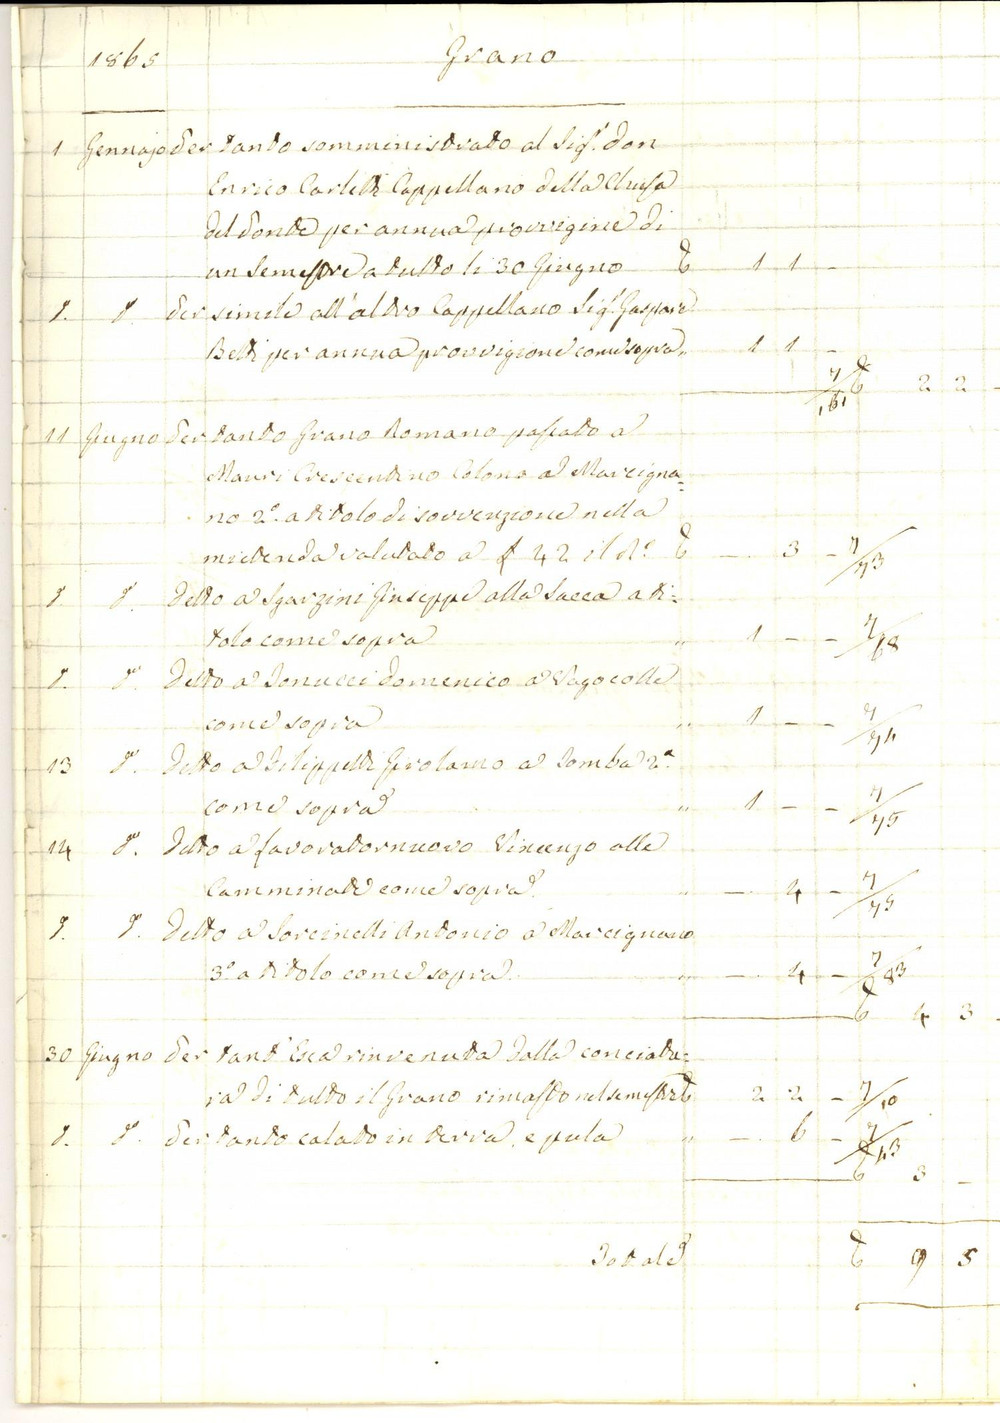 1865 Grano
1 Gennajo Per tanto somministrato al Sig.r Don
Enrico Carletti Cappellano della Chiesa
del Ponte per annua provvigione di
un Semestre a tutto li 30 Giugno 1 1 –
d. d. Per simile all'altro Cappellano Sig.r Gaspare
Betti per annua provvigione come sopra „ 1 1 –
7/161 2 2 –
11 Giugno Per tanto Grano Romano passato a
Mauri Crescentino Colono a Marcigna=
no 2.o a titolo di sovvenzione nella
mietenda valutato a 42 il R.o – 3 – 7/73
d. d. Detto a Sgarzini Giuseppe alla Sacca a ti=
tolo come sopra „ 1 – – 7/68
d. d. Detto a Donucci Domenico a Vagocolle
come sopra „ 1 – – 7/74
13 d. Detto a Filippetti Girolamo a Tomba 2.a
come sopra „ 1 – – 7/75
14 d. Detto a Lavoratornuovo Vincenzo alle
Camminate come sopra „ – 4 – 7/73
d. d. Detto a Sorcinelli Antonio a Marcignano
3.o a titolo come sopra „ – 4 – 7/83
4 3 –
30 Giugno Per tant' Esca rinvenuta dalla conciatu=
ra di tutto il Grano rimasto nel semestre 2 2 – 7/10
d. d. Per tanto calato in terra, e pula „ – 6 – 7/43
3 –
Totale 9 5